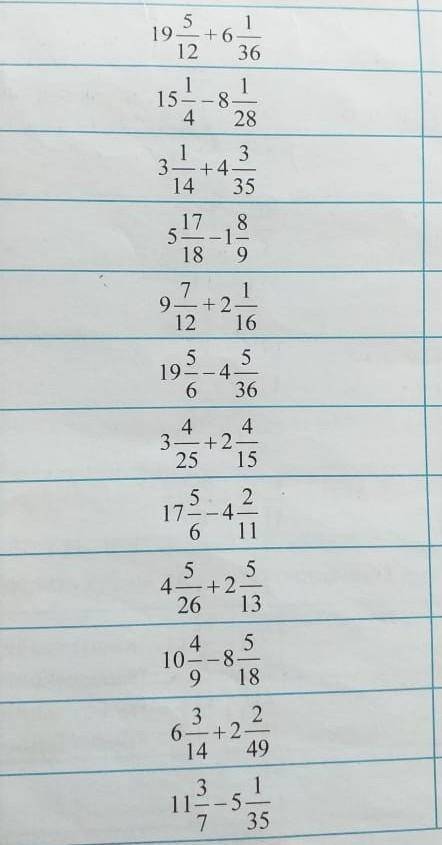 19 5/12 + 6 1/36
15 1/4 − 8 1/28
3 1/14 + 4 3/35
5 17/18 − 1 8/9
9 7/12 + 2 1/16
19 5/6 − 4 5/36
3 4/25 + 2 4/15
17 5/6 − 4 2/11
4 5/26 + 2 5/13
10 4/9 − 8 5/18
6 3/14 + 2 2/49
11 3/7 − 5 1/35